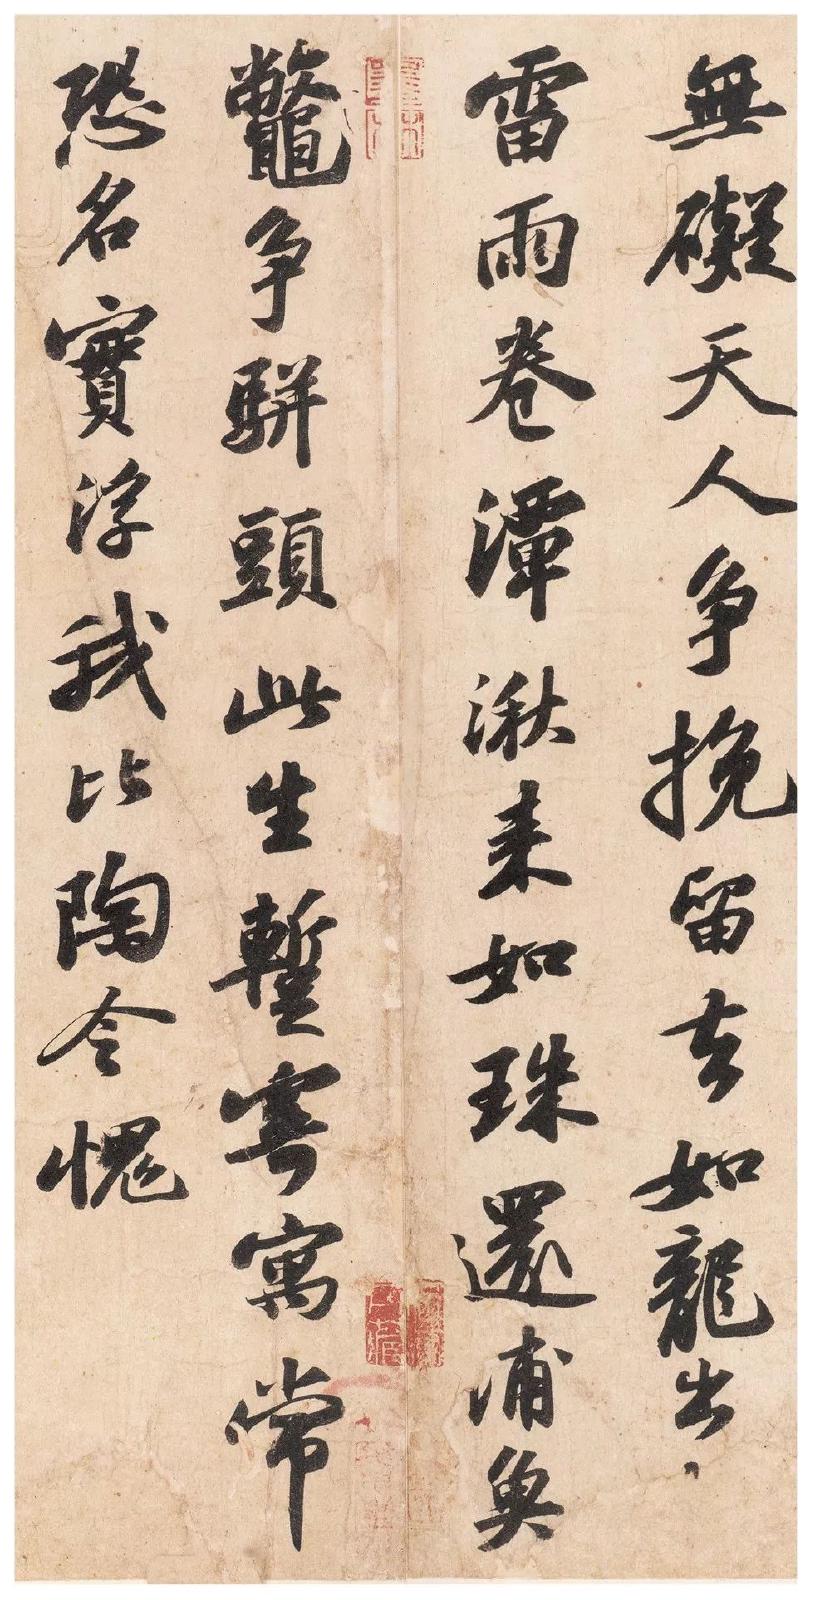 無礙天人争挽留去如龍出
雷雨卷潭湫来如珠還浦魚
鼈争駢頭此生暫寄寓常
恐名實浮我比陶令愧